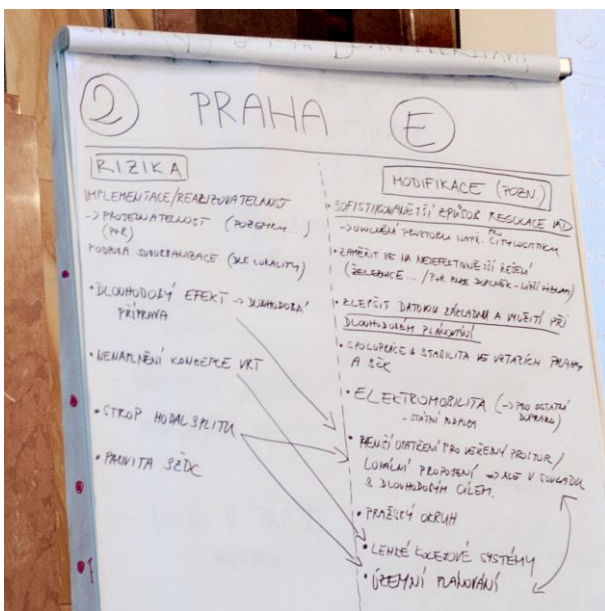 2 PRAHA E
RIZIKA
IMPLEMENTACE/REALIZOVATELNOST
-> PROJEDNATELNOST (POZEMKY...)
PODPORA SUBURBANIZACE (DLE LOKALITY)
• DLOUHODOBÝ EFEKT -> DLOUHODOBÁ
PŘÍPRAVA
• NENAPLNĚNÍ KONCEPCE VRT
• STROP MODAL SPLITU
• PASIVITA SŽDC
MODIFIKACE (POZN.)
• SOFISTIKOVANĚJŠÍ ZPŮSOB REGULACE IAD
-> UVOLNĚNÍ PROSTORU NAPŘ. PRO CITYLOGISTIKU
• ZAMĚŘIT SE NA NEJEFEKTIVNĚJŠÍ ŘEŠENÍ
(ŽELEZNICE... / DOPLNĚK - NIŽŠÍ VÝZNAM)
• ZLEPŠIT DATOVOU ZÁKLADNU A VYUŽITÍ PŘI
DLOUHODOBÉM PLÁNOVÁNÍ
• SPOLUPRÁCE & STABILITA VE VZTAZÍCH PRAHY
A SČK
• ELEKTROMOBILITA (-> PRO OSTATNÍ
DOPRAVU)
- STÁTNÍ PODPORA
• MENŠÍ OPATŘENÍ PRO VEŘEJNÝ PROSTOR/
LOKÁLNÍ PROPOJENÍ -> ALE V SOULADU
S DLOUHODOBÝM CÍLEM.
• PRAŽSKÝ OKRUH
• LEHKÉ KOLEJOVÉ SYSTÉMY
• ÚZEMNÍ PLÁNOVÁNÍ